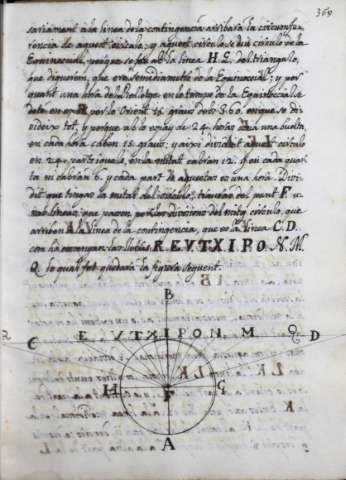 369
sariament a la linea de la contingencia arribara la circunfe-
rencia de aquest circulo; y aquest circulo se diu circulo de la
Equinoccial, perque se feu ab la linea H.E. del triangulo,
que diguerem, que era semidiametre de la Equinoccial; y per
quant una hora de la
de 15 graus dels 360. en que se di-
tot, y perque ab lo de 24. horas una buelta,
en cada hora caben 15. graus; y aixi dividit aquest circulo
en 24. parts iguals, en la mitat cabran 12. y en cada quar-
ta ni cabran 6. y cada part de aquestas es una hora. Divi-
dit que tingas la mitat del circulo, tiraras del punt F. u-
nas lineas, que passen per las divisions del mitg circulo, que
arriben a la linea de la contingencia, que es la linea C.D.
com las R.E.V.T.X.I.P.O.N.M.
Q. lo qual fet quedara la figura seguent.
B
R C E. V T X I P O N. M Q D
H F G
A